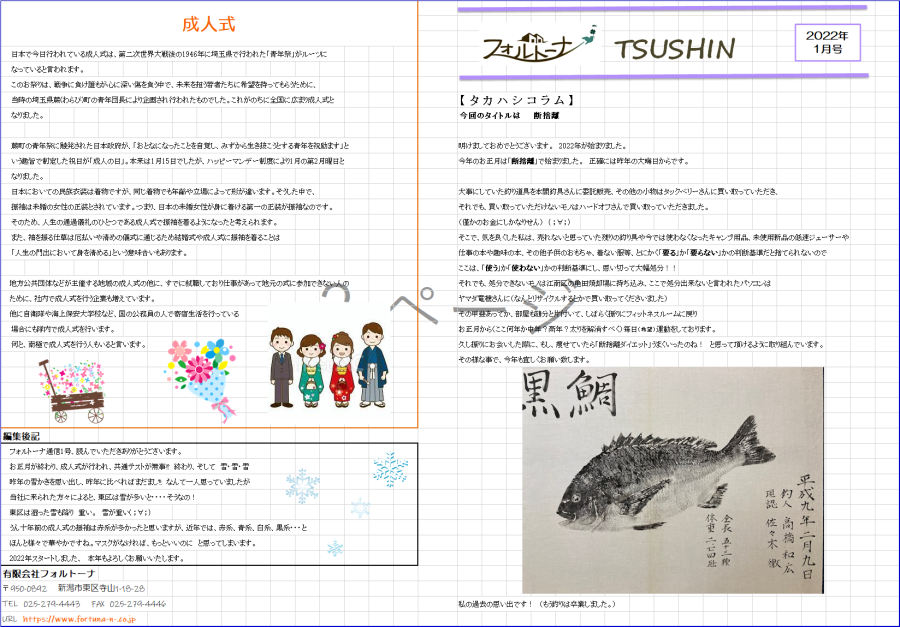 成人式
日本で今日行われている成人式は、第二次世界大戦後の1946年に埼玉県で行われた「青年祭」がルーツに
なっていると言われます。
このお祭りは、戦争に負け誰もが心に深い傷を負う中で、未来を担う若者たちに希望を持ってもらうために、
当時の埼玉県蕨(わらび)町の青年団長により企画され行われたものでした。これがのちに全国に広まり成人式と
なりました。
蕨町の青年祭に触発された日本政府が、「おとなになったことを自覚し、みずから生き抜こうとする青年を祝励します」と
いう趣旨で制定した祝日が「成人の日」。本来は1月15日でしたが、ハッピーマンデー制度により1月の第2月曜日と
なりました。
日本においての民族衣装は着物ですが、同じ着物でも年齢や立場によって形が違います。そうした中で、
振袖は未婚の女性の正装とされています。つまり、日本の未婚女性が身に着ける第一の正装が振袖なのです。
そのため、人生の通過儀礼のひとつである成人式で振袖を着るようになったと考えられます。
また、袖を振る仕草は厄払いや清めの儀式に通じるため結婚式や成人式に振袖を着ることは
「人生の門出において身を清める」という意味合いもあります。
地方公共団体などが主催する地域の成人式の他に、すでに就職しており仕事があって地元の式に参加できない人の
ために、社内で成人式を行う企業も増えています。
他に自衛隊や海上保安大学校など、国の公務員の人で寄宿生活を行っている
場合にも隊内で成人式を行います。
何と、南極で成人式を行う人もいると言います。
編集後記
フォルトーナ通信1号、読んでいただきありがとうございます。
お正月が終わり、成人式が行われ、共通テストが無事!! 終わり、そして 雪・雪・雪
昨年の雪かきを思い出し、昨年に比べればまだまし!! なんて一人思っていましたが
当社に来られた方々によると、東区は雪が多いと・・・・そうなの!
東区は湿った雪も降り 重い。 雪が重い(；∀；)
うん十年前の成人式の振袖は赤系が多かったと思いますが、近年では、赤系、青系、白系、黒系・・・と
ほんと様々で華やかですね。マスクがなければ、もっといいのに と思ってしまいます。
2022年スタートしました、 本年もよろしくお願いいたします。
有限会社フォルトーナ
〒950-0892 新潟市東区寺山1-18-28
TEL 025-279-4443 FAX 025-279-4446
URL https://www.fortuna-n-.co.jp
フォルトーナ TSUSHIN
2022年
1月号
【タカハシコラム】
今回のタイトルは 断捨離
明けましておめでとうございます。 2022年が始まりました。
今年のお正月は「断捨離」で始まりました。 正確には昨年の大晦日からです。
大事にしていた釣り道具を本間釣具さんに委託販売、その他の小物はタックベリーさんに買い取っていただき、
それでも、買い取っていただけないモノはハードオフさんで買い取っていただきました。
(僅かのお金にしかなりせん) (；∀；)
そこで、気を良くした私は、売れないと思っていた残りの釣り具や今では使わなくなったキャンプ用品、未使用新品の低速ジューサーや
仕事の本や趣味の本、その他子供のおもちゃ、着ない服等、とにかく「要る」か「要らない」かの判断基準だと捨てられないので
ここは、「使う」か「使わない」かの判断基準にし、思い切って大幅処分！！
それでも、処分できないモノは江南区の亀田焼却場に持ち込み、ここで処分出来ないと言われたパソコンは
ヤマダ電機さんに(なんとリサイクルするとかで買い取ってくださいました)
その甲斐あってか、部屋も随分と片付いて、しばらく振りにフィットネスルームに戻り
お正月からくこ何年か中年？高年？太りを解消すべく毎日(希望)運動をしております。
久し振りにお会いした際に、もし、痩せていたら「断捨離ダイエット」うまくいったのね！ と思って頂けるように取り組んでいます。
その様な事で、今年も宜しくお願い致します。
黒鯛
平成九年二月九日
釣人 高橋和広
現認 佐々木徹
全長 五十三糎
体重 二二四〇瓩
私の過去の思い出です！ (もう釣りは卒業しました。)
ページ